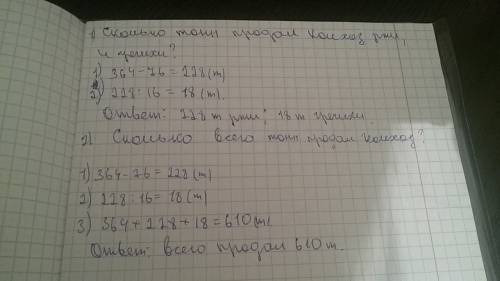 1) Сколько тонн продал колхоз ржи,
и гречихи?
1) 364-76=228(т)
2) 228:16=18(т).
Ответ: 228 т ржи; 18 т гречихи.
2) Сколько всего тонн продал колхоз?
1) 364-76=228(т)
2) 228:16=18(т)
3) 364+228+18=610(т).
Ответ: всего продал 610 т.